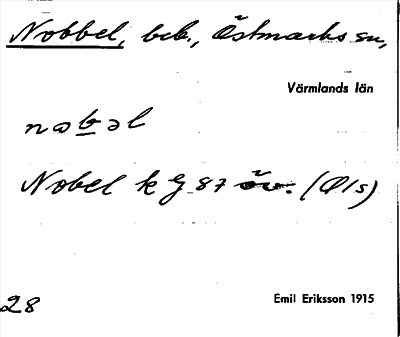 Nobbel, beb., Östmarks sn,
Värmlands län
nɔb̲əl
Nobel k G 87 öv. (Ø/s)
28
Emil Eriksson 1915